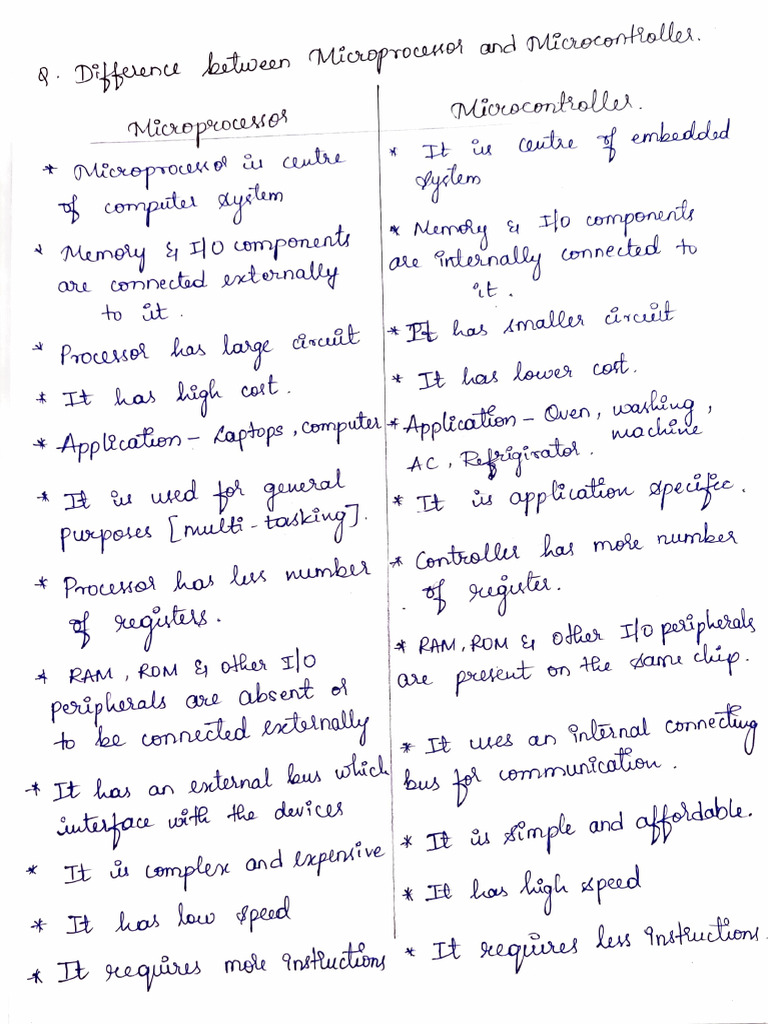 Q. Difference between Microprocessor and Microcontroller.
Microprocessor
* Microprocessor is centre
of computer system
* Memory & I/O components
are connected externally
to it.
* Processor has large circuit
* It has high cost.
* Application - Laptops, computer
* It is used for general
purposes [multi-tasking].
* Processor has less number
of registers.
* RAM, ROM & other I/O
peripherals are absent or
to be connected externally
* It has an external bus which
interface with the devices
* It is complex and expensive
* It has low speed
* It requires more instructions
Microcontroller.
* It is centre of embedded
system
* Memory & I/O components
are internally connected to
it.
* It has smaller circuit
* It has lower cost.
* Application - Oven, washing,
machine
AC, Refrigirator.
* It is application specific.
* Controller has more number
of register.
* RAM, ROM & other I/O peripherals
are present on the same chip.
* It uses an internal connecting
bus for communication.
* It is simple and affordable.
* It has high speed
* It requires less instructions.